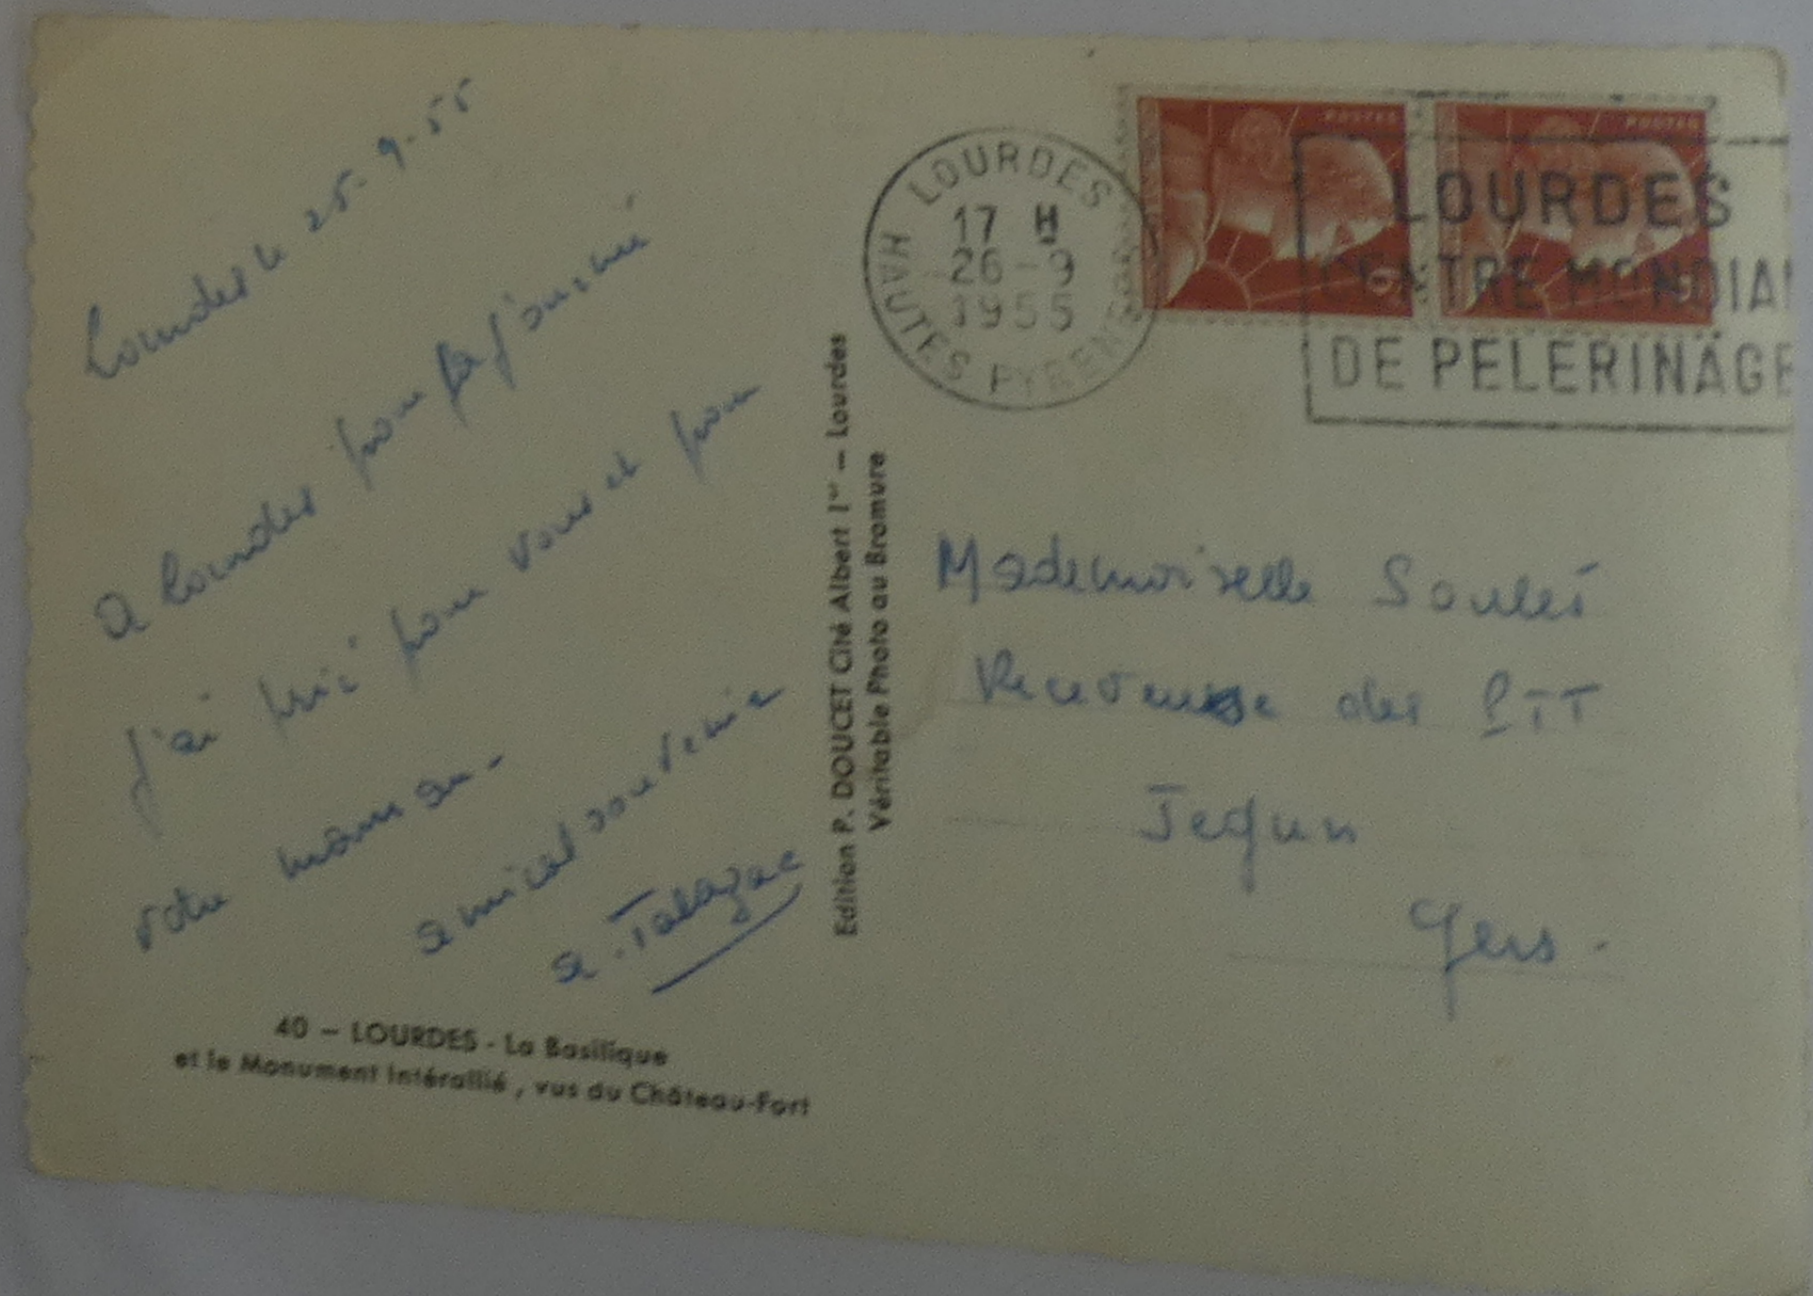 Lourdes le 25-9-55
A Lourdes pour la journée
j'ai prié pour vous et pour
votre maman -
amical souvenir
a. Tabazac
40 – LOURDES - La Basilique
et le Monument Intérallié, vus du Château-Fort
Edition P. DOUCET Cité Albert 1er – Lourdes
Véritable Photo au Bromure
LOURDES
17 H
26 - 9
1955
HAUTES PYRENEES
POSTES
POSTES
LOURDES
CENTRE MONDIAL
DE PELERINAGE
Mademoiselle Soulés
Receveuse des PTT
Jegun
Gers -